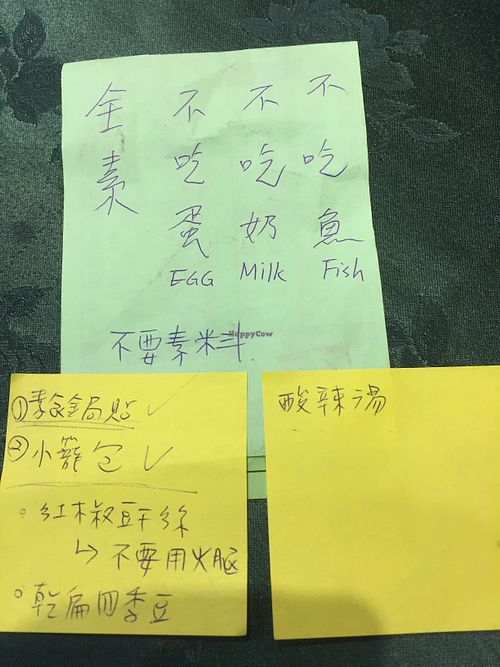 全素
不吃蛋
EGG
不吃奶
Milk
不吃魚
Fish
不要素料.
HappyCow
①素食鍋貼 ✓
②小籠包 ✓
。紅椒豆干絲
↳不要用火腿
。乾扁四季豆
酸辣湯